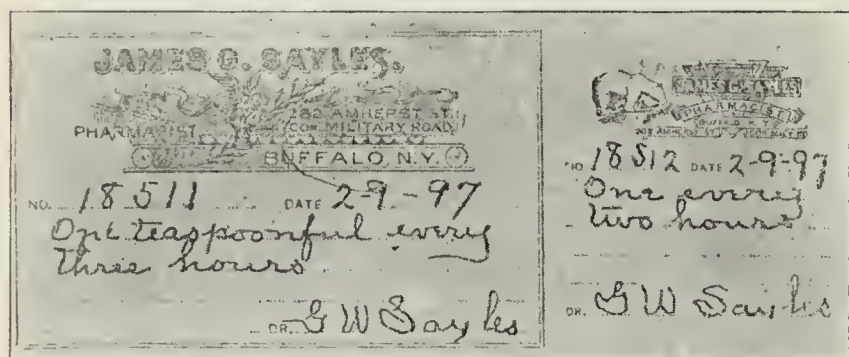 JAMES G. SAYLES.
PHARMACIST,
282 AMHERST ST.
COR. MILITARY ROAD,
BUFFALO, N.Y.
NO. 18511 DATE 2-9-97
One teaspoonful every
three hours
DR. G W Sayles
JAMES G. SAYLES
PHARMACIST
BUFFALO N.Y.
NO 18512 DATE 2-9-97
One every
two hours
DR. G W Sayles